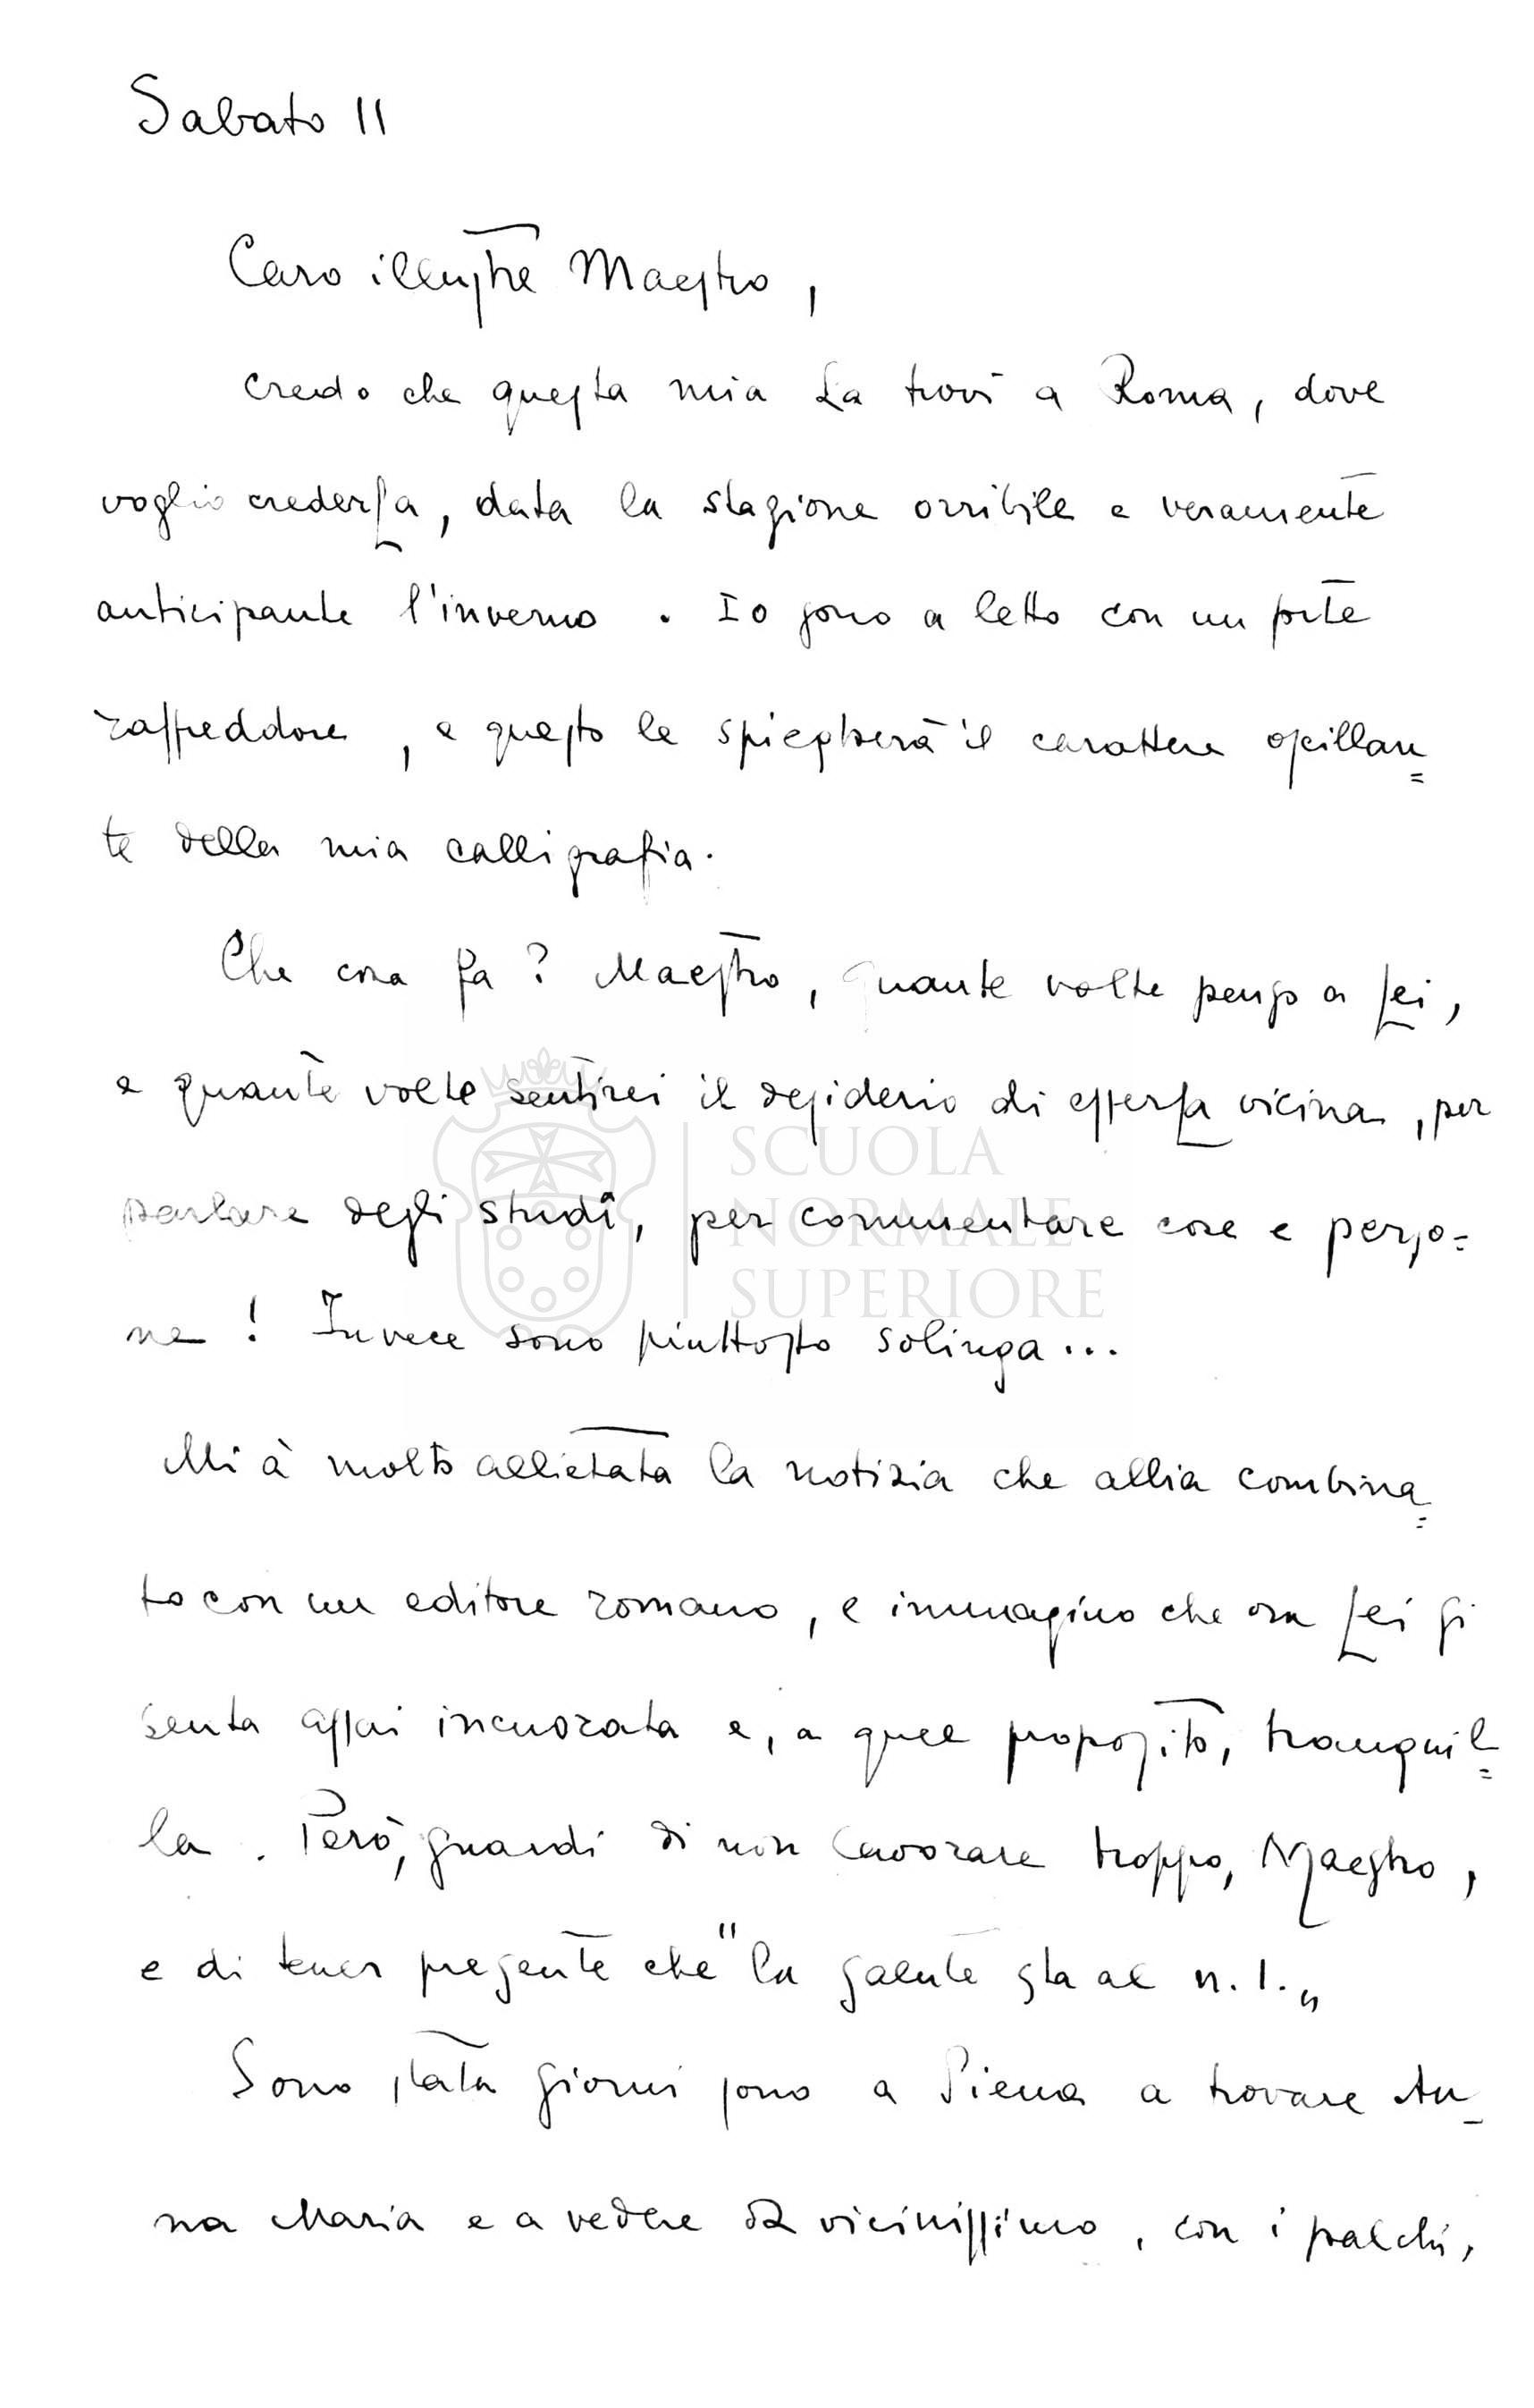 Sabato 11
Caro illustre Maestro,
credo che questa mia La trovi a Roma, dove
voglio crederLa, data la stagione orribile e veramente
anticipante l'inverno. Io sono a letto con un forte
raffreddore, e questo le spiegherà il carattere oscillan=
te della mia calligrafia.
Che cosa fa? Maestro, quante volte penso a Lei,
e quante volte sentirei il desiderio di esserLa vicina, per
parlare degli studî, per commentare cose e perso=
ne! Invece sono piuttosto solinga...
Mi à molto allietata la notizia che abbia combina=
to con un editore romano, e immagino che ora Lei si
senta assai incuorata e, a quel proposito, tranquil=
la. Però, guardi di non lavorare troppo, Maestro,
e di tener presente che "la salute sta al n. 1.„
Sono stata giorni sono a Siena a trovare An-
na Maria e a vedere da vicinissimo, con i palchi,
SCUOLA
NORMALE
SUPERIORE